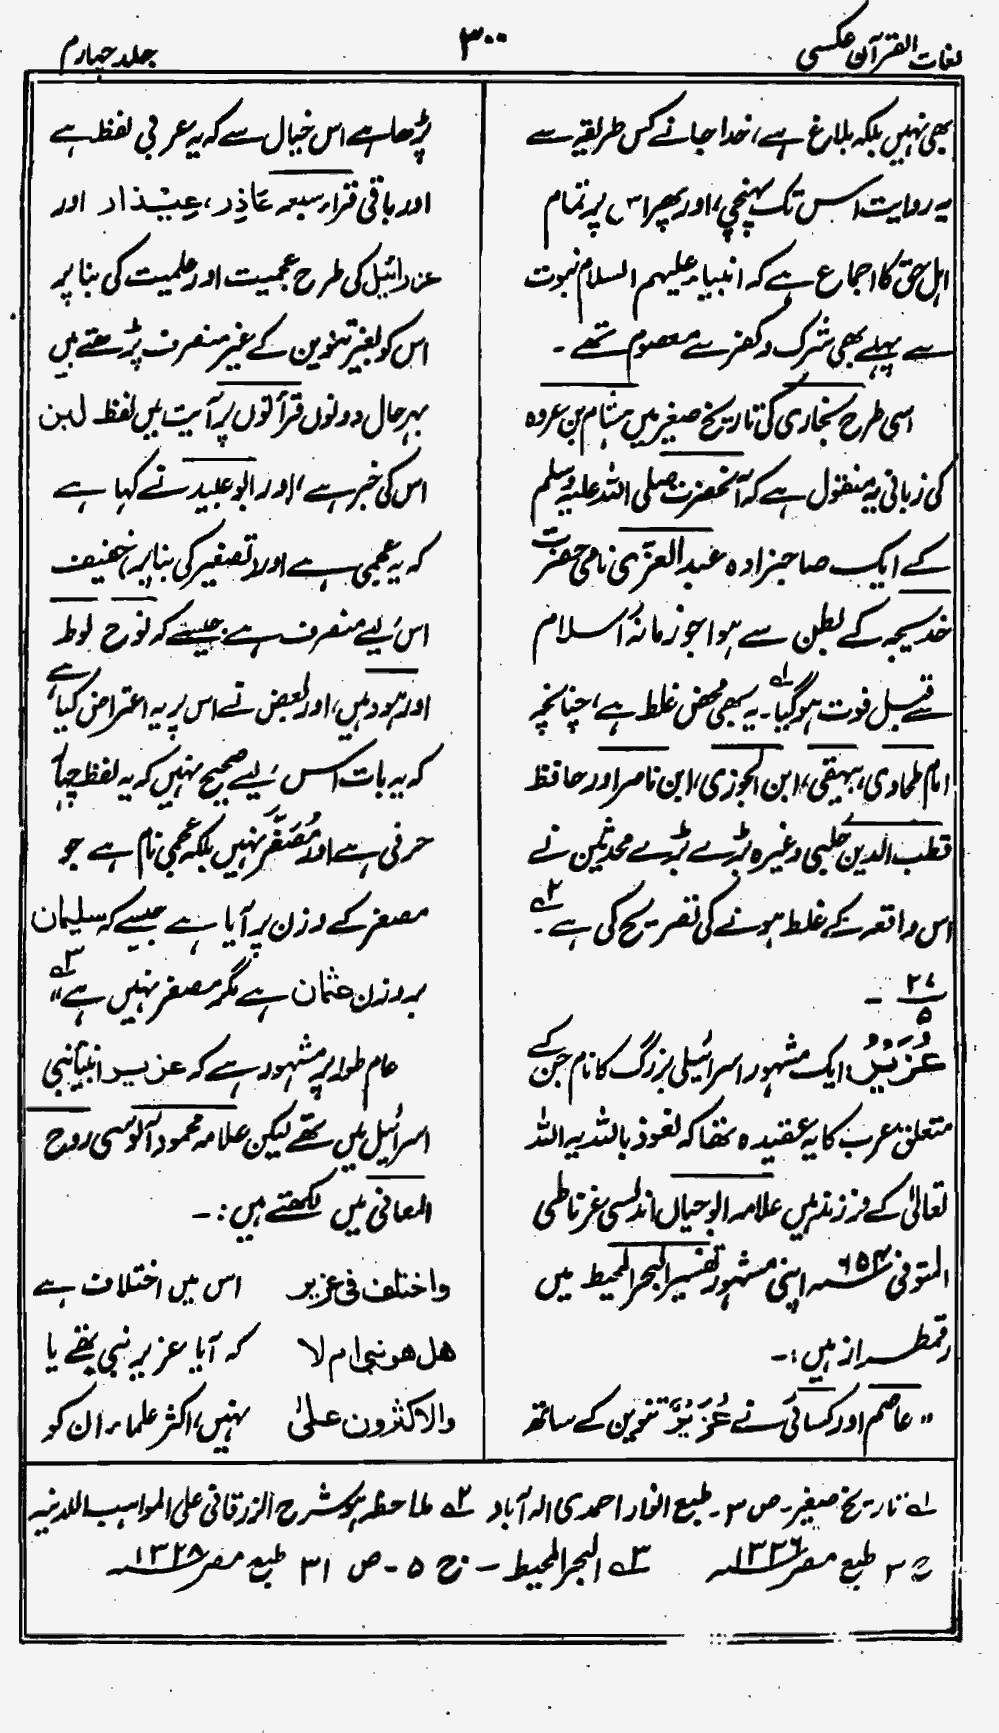 لغات القرآن عکسی
۳۰۰
جلد چہارم
بھی نہیں بلکہ بلاغ ہے، خدا جانے کس طریقہ سے
یہ روایت اس تک پہنچی، اور پھر اس پر تمام
اہل حق کا اجماع ہے کہ انبیاء علیہم السلام نبوت
سے پہلے بھی شرک و کفر سے معصوم تھے ۔
اسی طرح بخاری کی تاریخ صغیر میں ہشام بن عروہ
کی زبانی یہ منقول ہے کہ آنحضرت صلی اللہ علیہ وسلم
کے ایک صاحبزادہ عبد العزّٰی نامی حضرت
خدیجہ کے بطن سے ہوا جو زمانۂ اسلام
سے قبل فوت ہوگیا۔ ؎۱ یہ بھی محض غلط ہے، چنانچہ
امام طحاوی، بیہقی، ابن الجوزی، ابن ناصر اور حافظ
قطب الدین حلبی وغیرہ بڑے بڑے محدثین نے
اس واقعہ کے غلط ہونے کی تصریح کی ہے ؎۲ ۔
۲۷
۵ ۔
عُزَیْرٌ: ایک مشہور اسرائیلی بزرگ کا نام جن کے
متعلق عرب کا یہ عقیدہ تھا کہ نعوذ باللہ یہ اللہ
تعالیٰ کے فرزند ہیں علامہ ابوحیان اندلسی غرناطی
المتوفی ۶۵۴ھ اپنی مشہور تفسیر البحر المحیط میں
رقمطراز ہیں :۔
” عاصم اور کسائی نے عُزَیْرٌ تنوین کے ساتھ
پڑھا ہے اس خیال سے کہ یہ عربی لفظ ہے
اور باقی قراء سبعہ عَاذِر، عِیْذار اور
عزرائیل کی طرح عجمیت اور علمیت کی بنا پر
اس کو بغیر تنوین کے غیر منصرف پڑھتے ہیں
بہرحال دونوں قرأتوں پر آیت میں لفظ ابن
اس کی خبر ہے، اور ابو عبید نے کہا ہے
کہ یہ عجمی ہے اور تصغیر کی بنا پر خفیف
اس لیے منصرف ہے جیسے کہ نوح لوط
اور ہود ہیں، اور بعض نے اس پر یہ اعتراض کیا ہے
کہ یہ بات اس لیے صحیح نہیں کہ یہ لفظ چہار
حرفی ہے اور مُصَغَّر نہیں بلکہ عجمی نام ہے جو
مصغر کے وزن پر آیا ہے جیسے کہ سلیمان
بروزن عثمان ہے مگر مصغر نہیں ہے“ ؎۳
عام طور پر مشہور ہے کہ عزیر انبیائے بنی
اسرائیل میں تھے لیکن علامہ محمود آلوسی روح
المعانی میں لکھتے ہیں :۔
واختلف فی عزیر اس میں اختلاف ہے
ھل ھو نبی ام لا کہ آیا عزیر نبی تھے یا
والاکثرون علیٰ نہیں، اکثر علماء ان کو
؎۱ تاریخ صغیر۔ ص ۳۔ طبع انوار احمدی الہ آباد ؎۲ ملاحظہ ہو شرح الزرقانی علی المواہب اللدنیہ
ج ۳ طبع مصر ۱۳۲۶ھ ؎۳ البحر المحیط ۔ ج ۵ ۔ ص ۳۱ طبع مصر ۱۳۲۸ھ